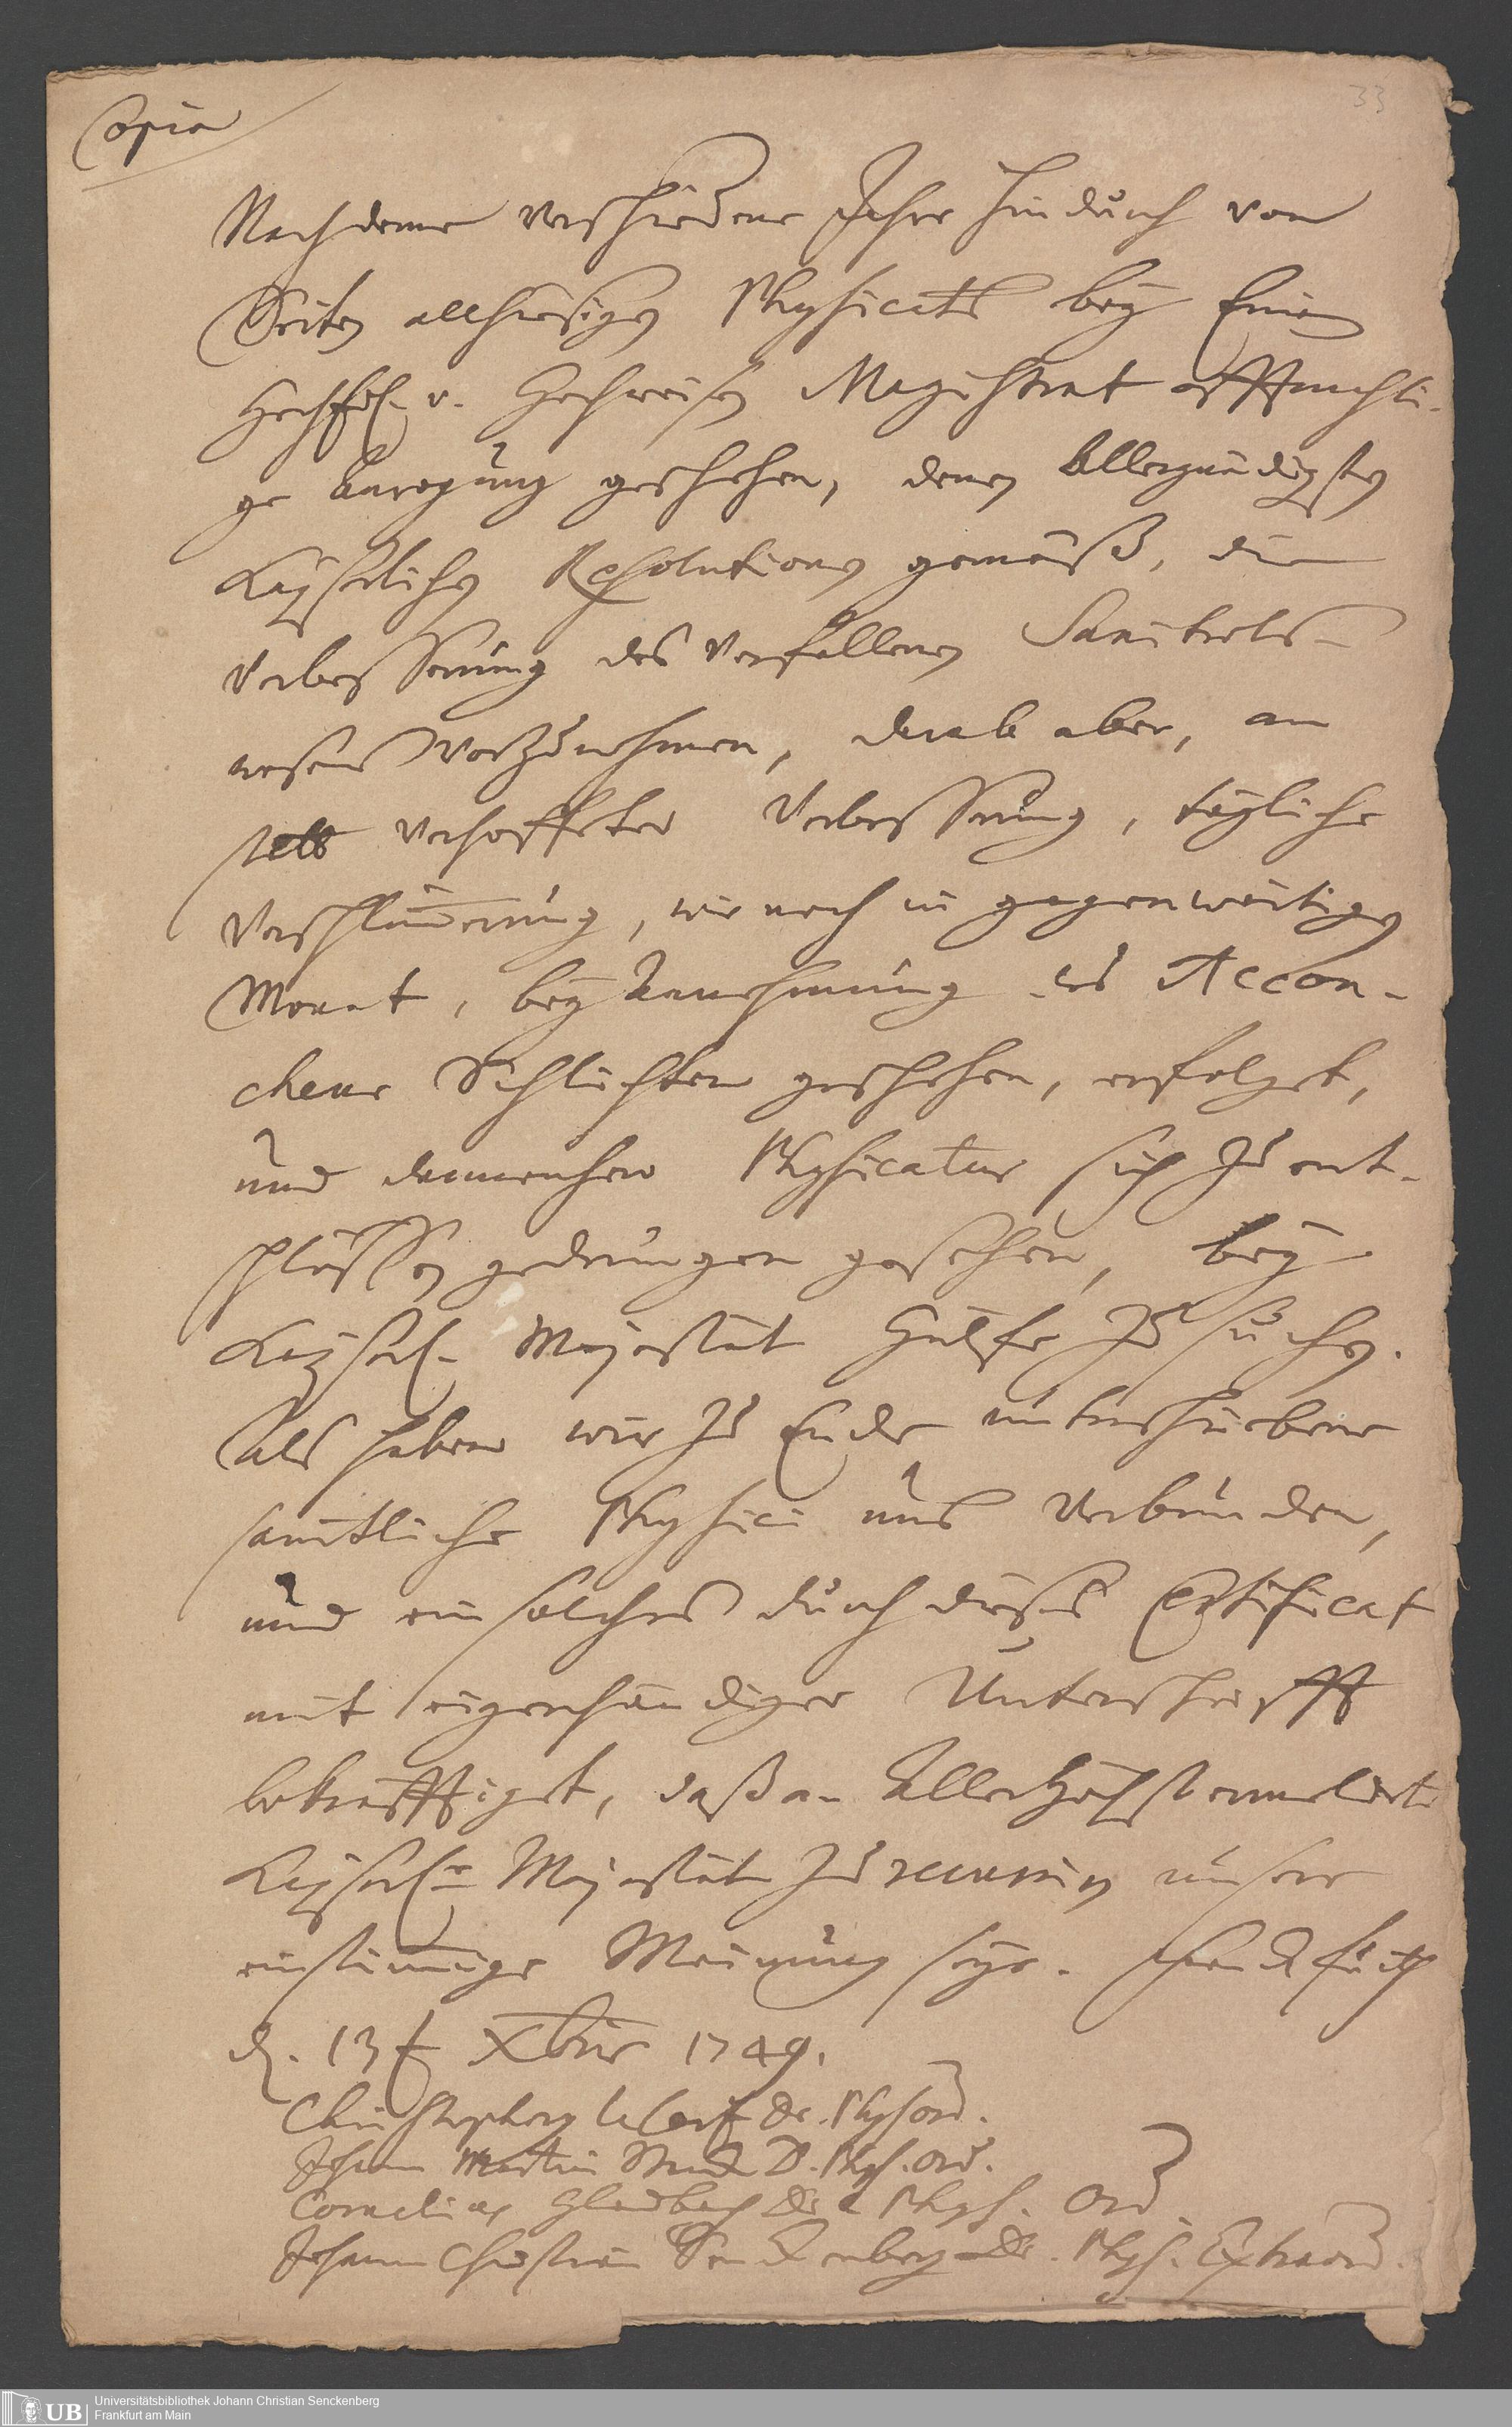 33
Copia
Nachdeme verschiedene Jahre hindurch von
Seiten allhiesigen Physicats bey Einem
Hochfl. u. Hochweisen Magistrat offtmahli-
ge Anregung geschehen, denen Allergnädigsten
Kayserlichen Resolutionen gemäß, die
Verbesserung des Verfallenen Sanitäts-
wesens vorzunehmen, aber, an
statt verhoffter Verbesserung, tägliche
Verschlimmerung, wie noch in gegenwärtigen
Monat, bey Annehmung des Accou-
cheur Schlichten geschehen, erfolget,
und dannenhero Physicatus sich zu ent-
schließen gedrungen gesehen, bey
Kayserl. Majestät Hülfe zu suchen.
Als haben wir zu Ende unterschriebene
samtliche Physici uns verbunden,
und ein solches durch dieses Certificat
mit eigenhändiger Unterschrifft
bekräfftiget, daß an Allerhöchst ermeldte
Kayserl. Majestät zu recurriren unsere
einstimmige Meinung seye. Franckfurth
d. 13t Xbris 1749.
Christoph Dr. Phys. ord.
Johann Martin Starck D. Phys. Ord.
Cornelius Gladbach Dr & Phys. Ord
Johann Christian Senckenberg Dr. Phys. Extraord.
UB Universitätsbibliothek Johann Christian Senckenberg
Frankfurt am Main